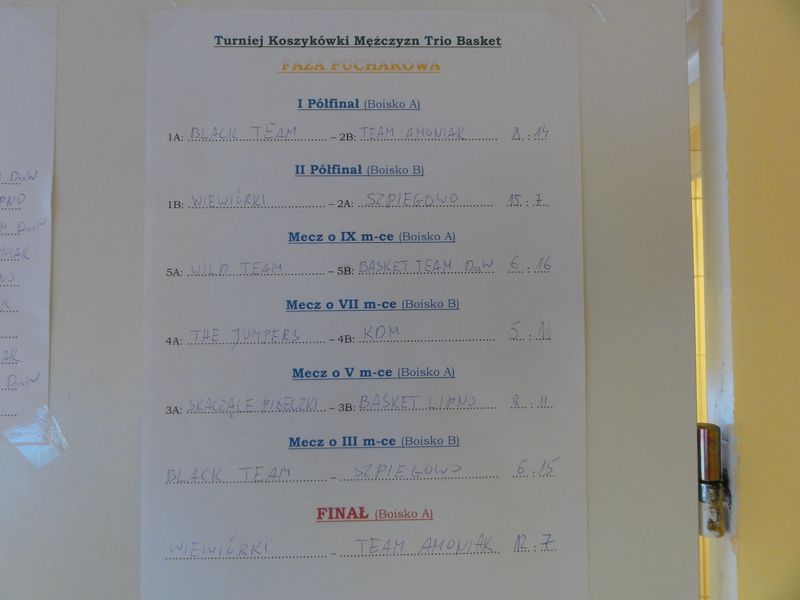 Turniej Koszykówki Mężczyzn Trio Basket
FAZA PUCHAROWA
I Półfinał (Boisko A)
1A: BLACK TEAM – 2B: TEAM AMONIAK 8 : 14
II Półfinał (Boisko B)
1B: WIEWIÓRKI – 2A: SZPIEGOWO 15 : 7
Mecz o IX m-ce (Boisko A)
5A: WILD TEAM – 5B: BASKET TEAM DNW 6 : 16
Mecz o VII m-ce (Boisko B)
4A: THE JUMPERS – 4B: KDM 5 : 11
Mecz o V m-ce (Boisko A)
3A: SKACZĄCE PIŁECZKI – 3B: BASKET LIPNO 8 : 11
Mecz o III m-ce (Boisko B)
BLACK TEAM – SZPIEGOWO 6 : 15
FINAŁ (Boisko A)
WIEWIÓRKI – TEAM AMONIAK 12 : 7